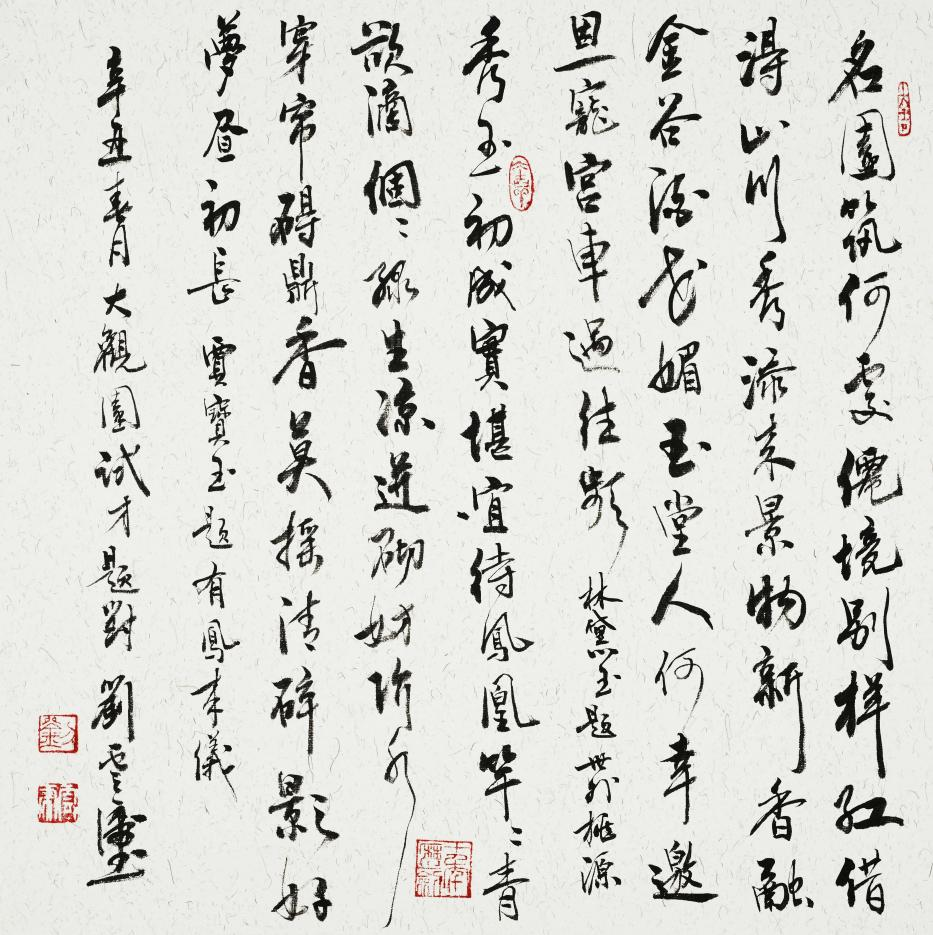 名園筑何處僊境别样红借
得山川秀添来景物新香融
金谷酒花媚玉堂人何幸邀
恩寵宮車過往频 林黛玉題世外桃源
秀玉初成實堪宜待鳳凰竿〻青
欲滴個〻绿生凉迸砌妨阶水
穿帘碍鼎香莫摇清碎影好
夢昼初長 賈寶玉題有鳳来儀
辛丑春月大觀園試才題對 劉雲